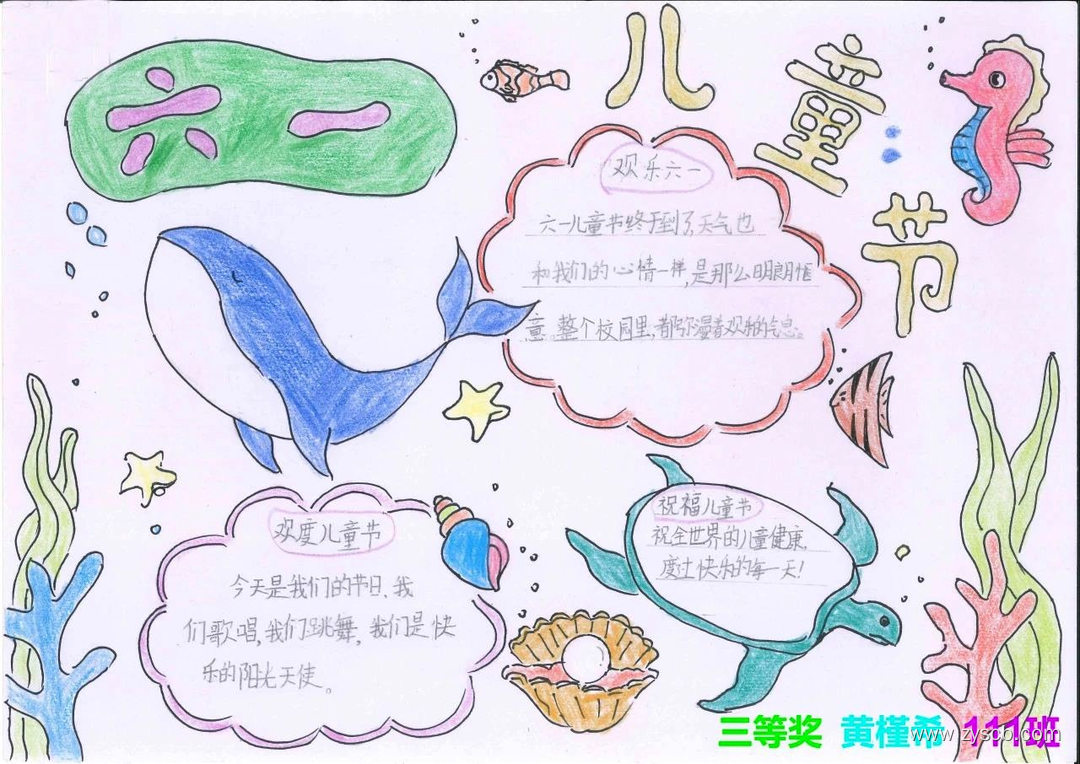 六一
儿童节
欢乐六一
六一儿童节终于到了,天气也
和我们的心情一样,是那么明朗惬
意。整个校园里,都弥漫着欢乐的气息。
祝福儿童节
祝全世界的儿童健康,
度过快乐的每一天!
欢度儿童节
今天是我们的节日、我
们歌唱,我们跳舞,我们是快
乐的阳光天使。
三等奖 黄槿希 111班
www.zyscb.com